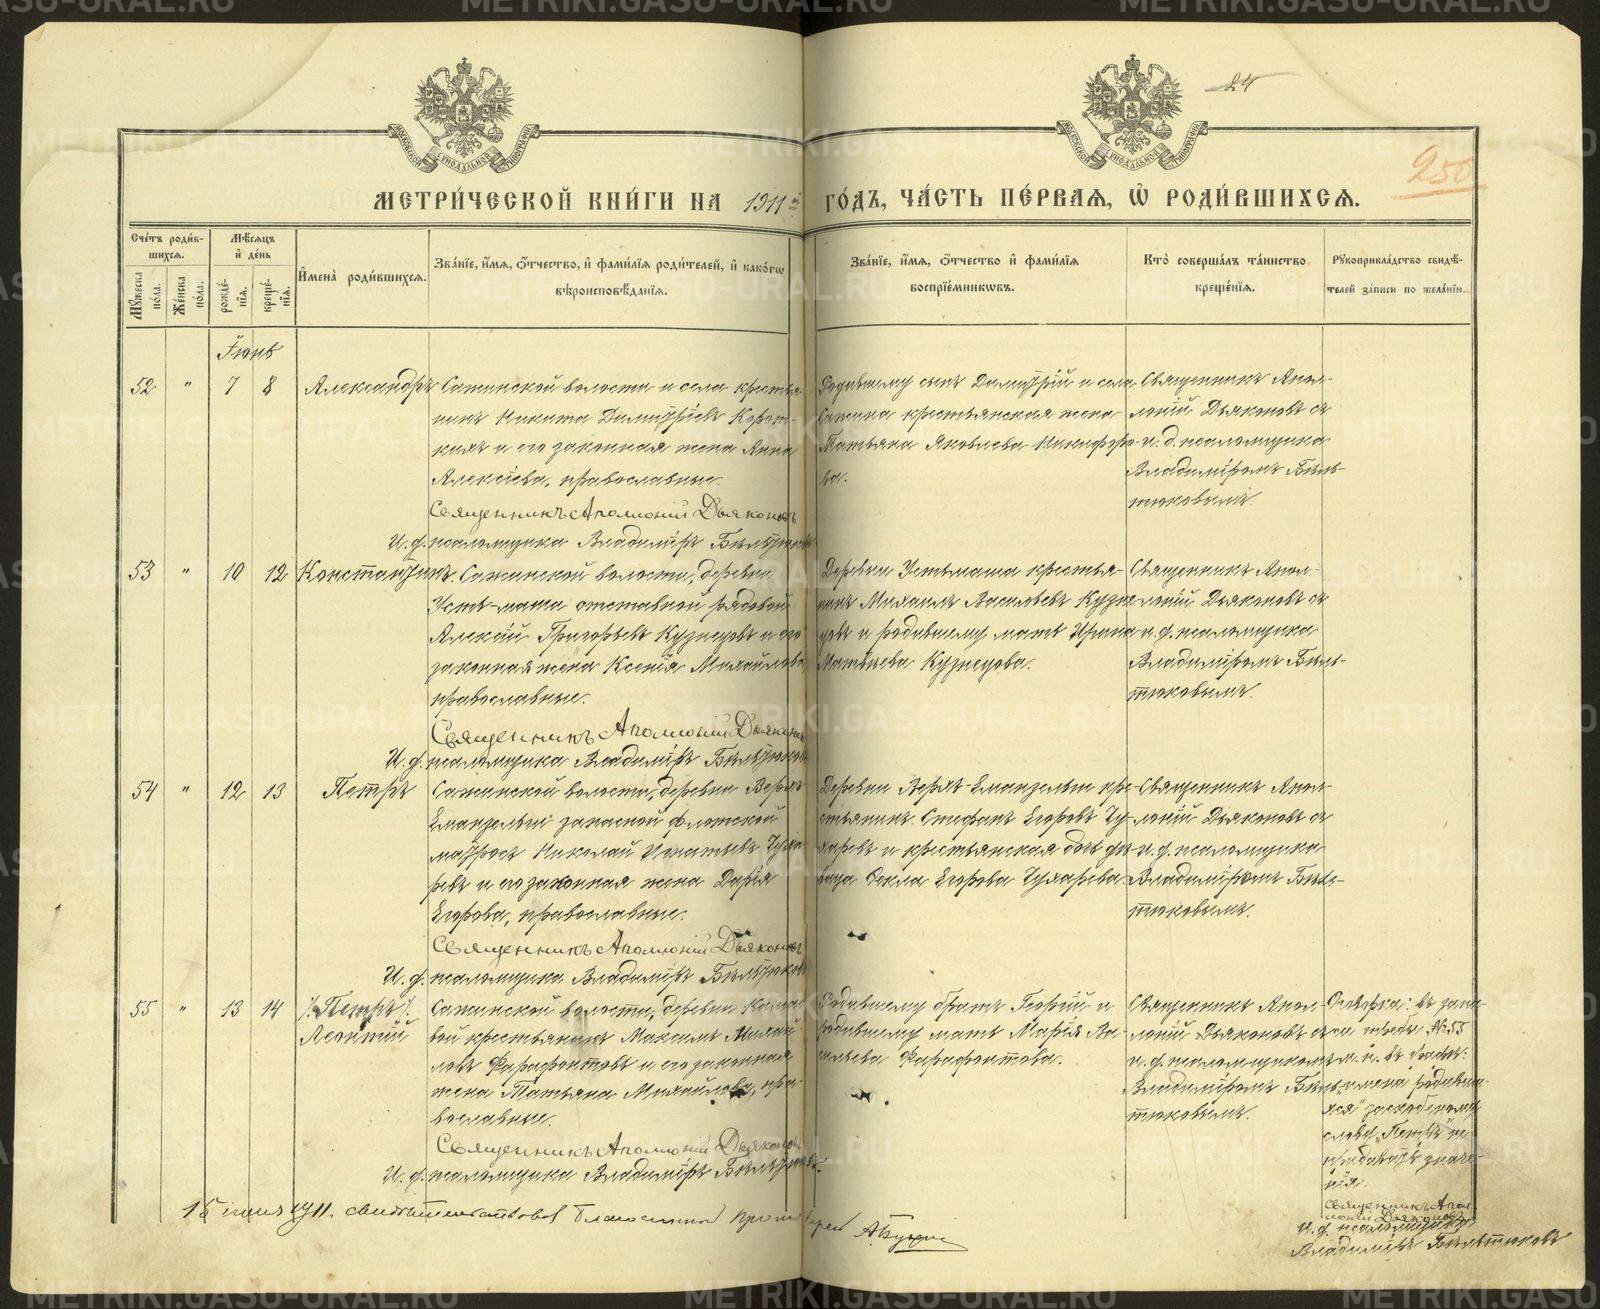 24
250
МОСКОВСКОЙ СѴНОДАЛЬНОЙ ТИПОГРАФІИ
МОСКОВСКОЙ СѴНОДАЛЬНОЙ ТИПОГРАФІИ
МЕТРИ́ЧЕСКОЙ КНИ́ГИ НА 1911й ГО́ДЪ, ЧА́СТЬ ПЕ́РВАѦ, Ѡ҆ РОДИ́ВШИХСѦ.
Сче́тъ роди́в-
шихсѧ.
Мꙋ́жеска по́ла.
Же́нска по́ла.
Мѣ́сѧцъ
и҆ де́нь
рожде́-
нїѧ.
креще́-
нїѧ.
И҆мена̀ роди́вшихсѧ.
Зва́нїе, и҆́мѧ, ѻ҆́тчество, и҆ фами́лїѧ роди́телей, и҆ како́гѡ
вѣроисповѣ́данїѧ.
Зва́нїе, и҆́мѧ, ѻ҆́тчество и҆ фами́лїѧ
воспрїе́мникѡвъ.
Кто̀ соверша́лъ та́инство
креще́нїѧ.
Рꙋкоприкла́дство свидѣ́-
телей за́писи по жела́нїю.
Іюнь
52 " 7 8 Александръ
Сажинской волости и села крестья-
нинъ Никита Димитріевъ Корот-
кихъ и его законная жена Анна
Алексіева, православные.
Священникъ Аполлоній Дьяконовъ
И. ф. псаломщика Владиміръ Бѣльтюковъ
Родившему сынъ Димитрій и села
Сажина крестьянская жена
Татьяна Яковлева Никифоро-
ва.
Священникъ Апол-
лоній Дьяконовъ съ
и. д. псаломщика
Владиміромъ Бѣль-
тюковымъ.
53 " 10 12 Константинъ
Сажинской волости, деревни
Усть-маша отставной рядовой
Алексій Григорьевъ Кузнецовъ и его
законная жена Ксенія Михайлова,
православные.
Священникъ Аполлоній Дьяконовъ
И. ф. псаломщика Владиміръ Бѣльтюковъ
Деревни Устьмаша крестья-
нинъ Михаилъ Васильевъ Кузне-
цовъ и родившему мать Ирина
Матвѣева Кузнецова.
Священникъ Апол-
лоній Дьяконовъ съ
и. ф. псаломщика
Владиміромъ Бѣль-
тюковымъ.
54 " 12 13 Петръ
Сажинской волости, деревни Верхъ-
Еманзельги запасной флотской
матросъ Николай Игнатьевъ Чуха-
ревъ и его законная жена Дарія
Егорова, православные.
Священникъ Аполлоній Дьяконовъ
И. ф. псаломщика Владиміръ Бѣльтюковъ
Деревни Верхъ-Еманзельги кре-
стьянинъ Стефанъ Егоровъ Чу-
харевъ и крестьянская дочь дѣ-
вица Ѳекла Егорова Чухарева.
Священникъ Апол-
лоній Дьяконовъ съ
и. ф. псаломщика
Владиміромъ Бѣль-
тюковымъ.
55 " 13 14 /:Петръ:/
Леонтій
Сажинской волости, деревни
крестьянинъ Максимъ Михай-
ловъ Фарафонтовъ и его законная
жена Татьяна Михайлова, пра-
вославные.
Священникъ Аполлоній Дьяконовъ
И. ф. псаломщика Владиміръ Бѣльтюковъ
Родившему братъ Георгій и
родившему мать Марія Ва-
сильева Фарафонтова.
Священникъ Апол-
лоній Дьяконовъ съ
и. ф. псаломщикомъ
Владиміромъ Бѣль-
тюковымъ.
Оговорка: въ запи-
си подъ № 55
м. п. въ графѣ:
"имена родивших-
ся" заскобленному
слову "Петръ" не
придавать значе-
нія.
Священникъ Апол-
лоній Дьяконовъ
И. ф. псаломщика
Владиміръ Бѣльтюковъ
15 1911. свидѣтельствовалъ Благочинный Протоіерей